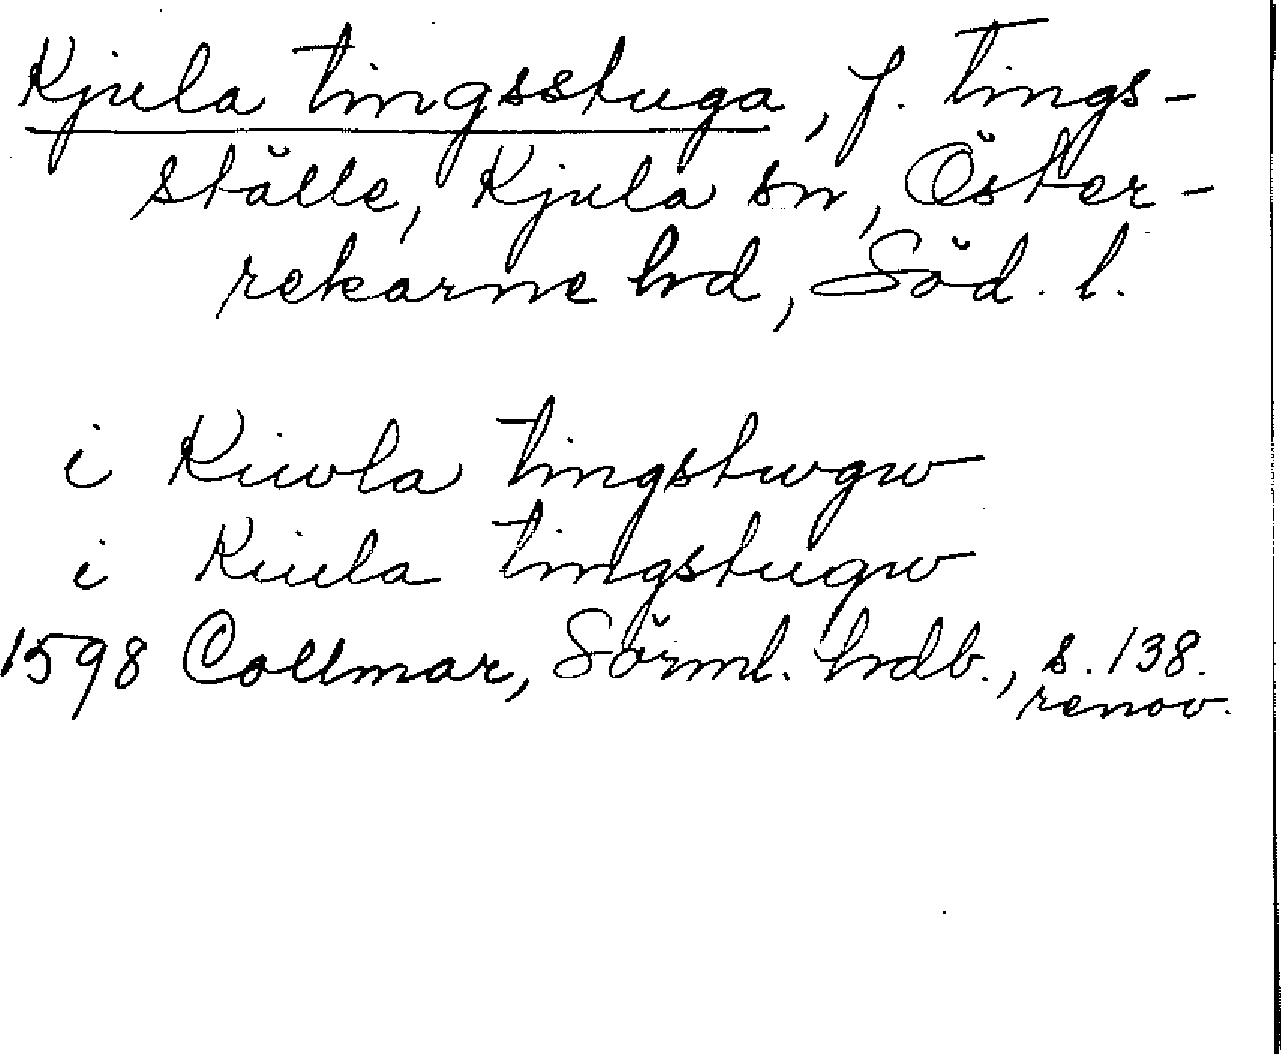 Kjula tingsstuga, f. tings-
ställe, Kjula sn, Öster-
rekarne hd, Söd. l.
i Kiwla tingstwgw
i Kiula tingstugw
1598 Collmar, Sörml. hdb., s. 138.
renov.